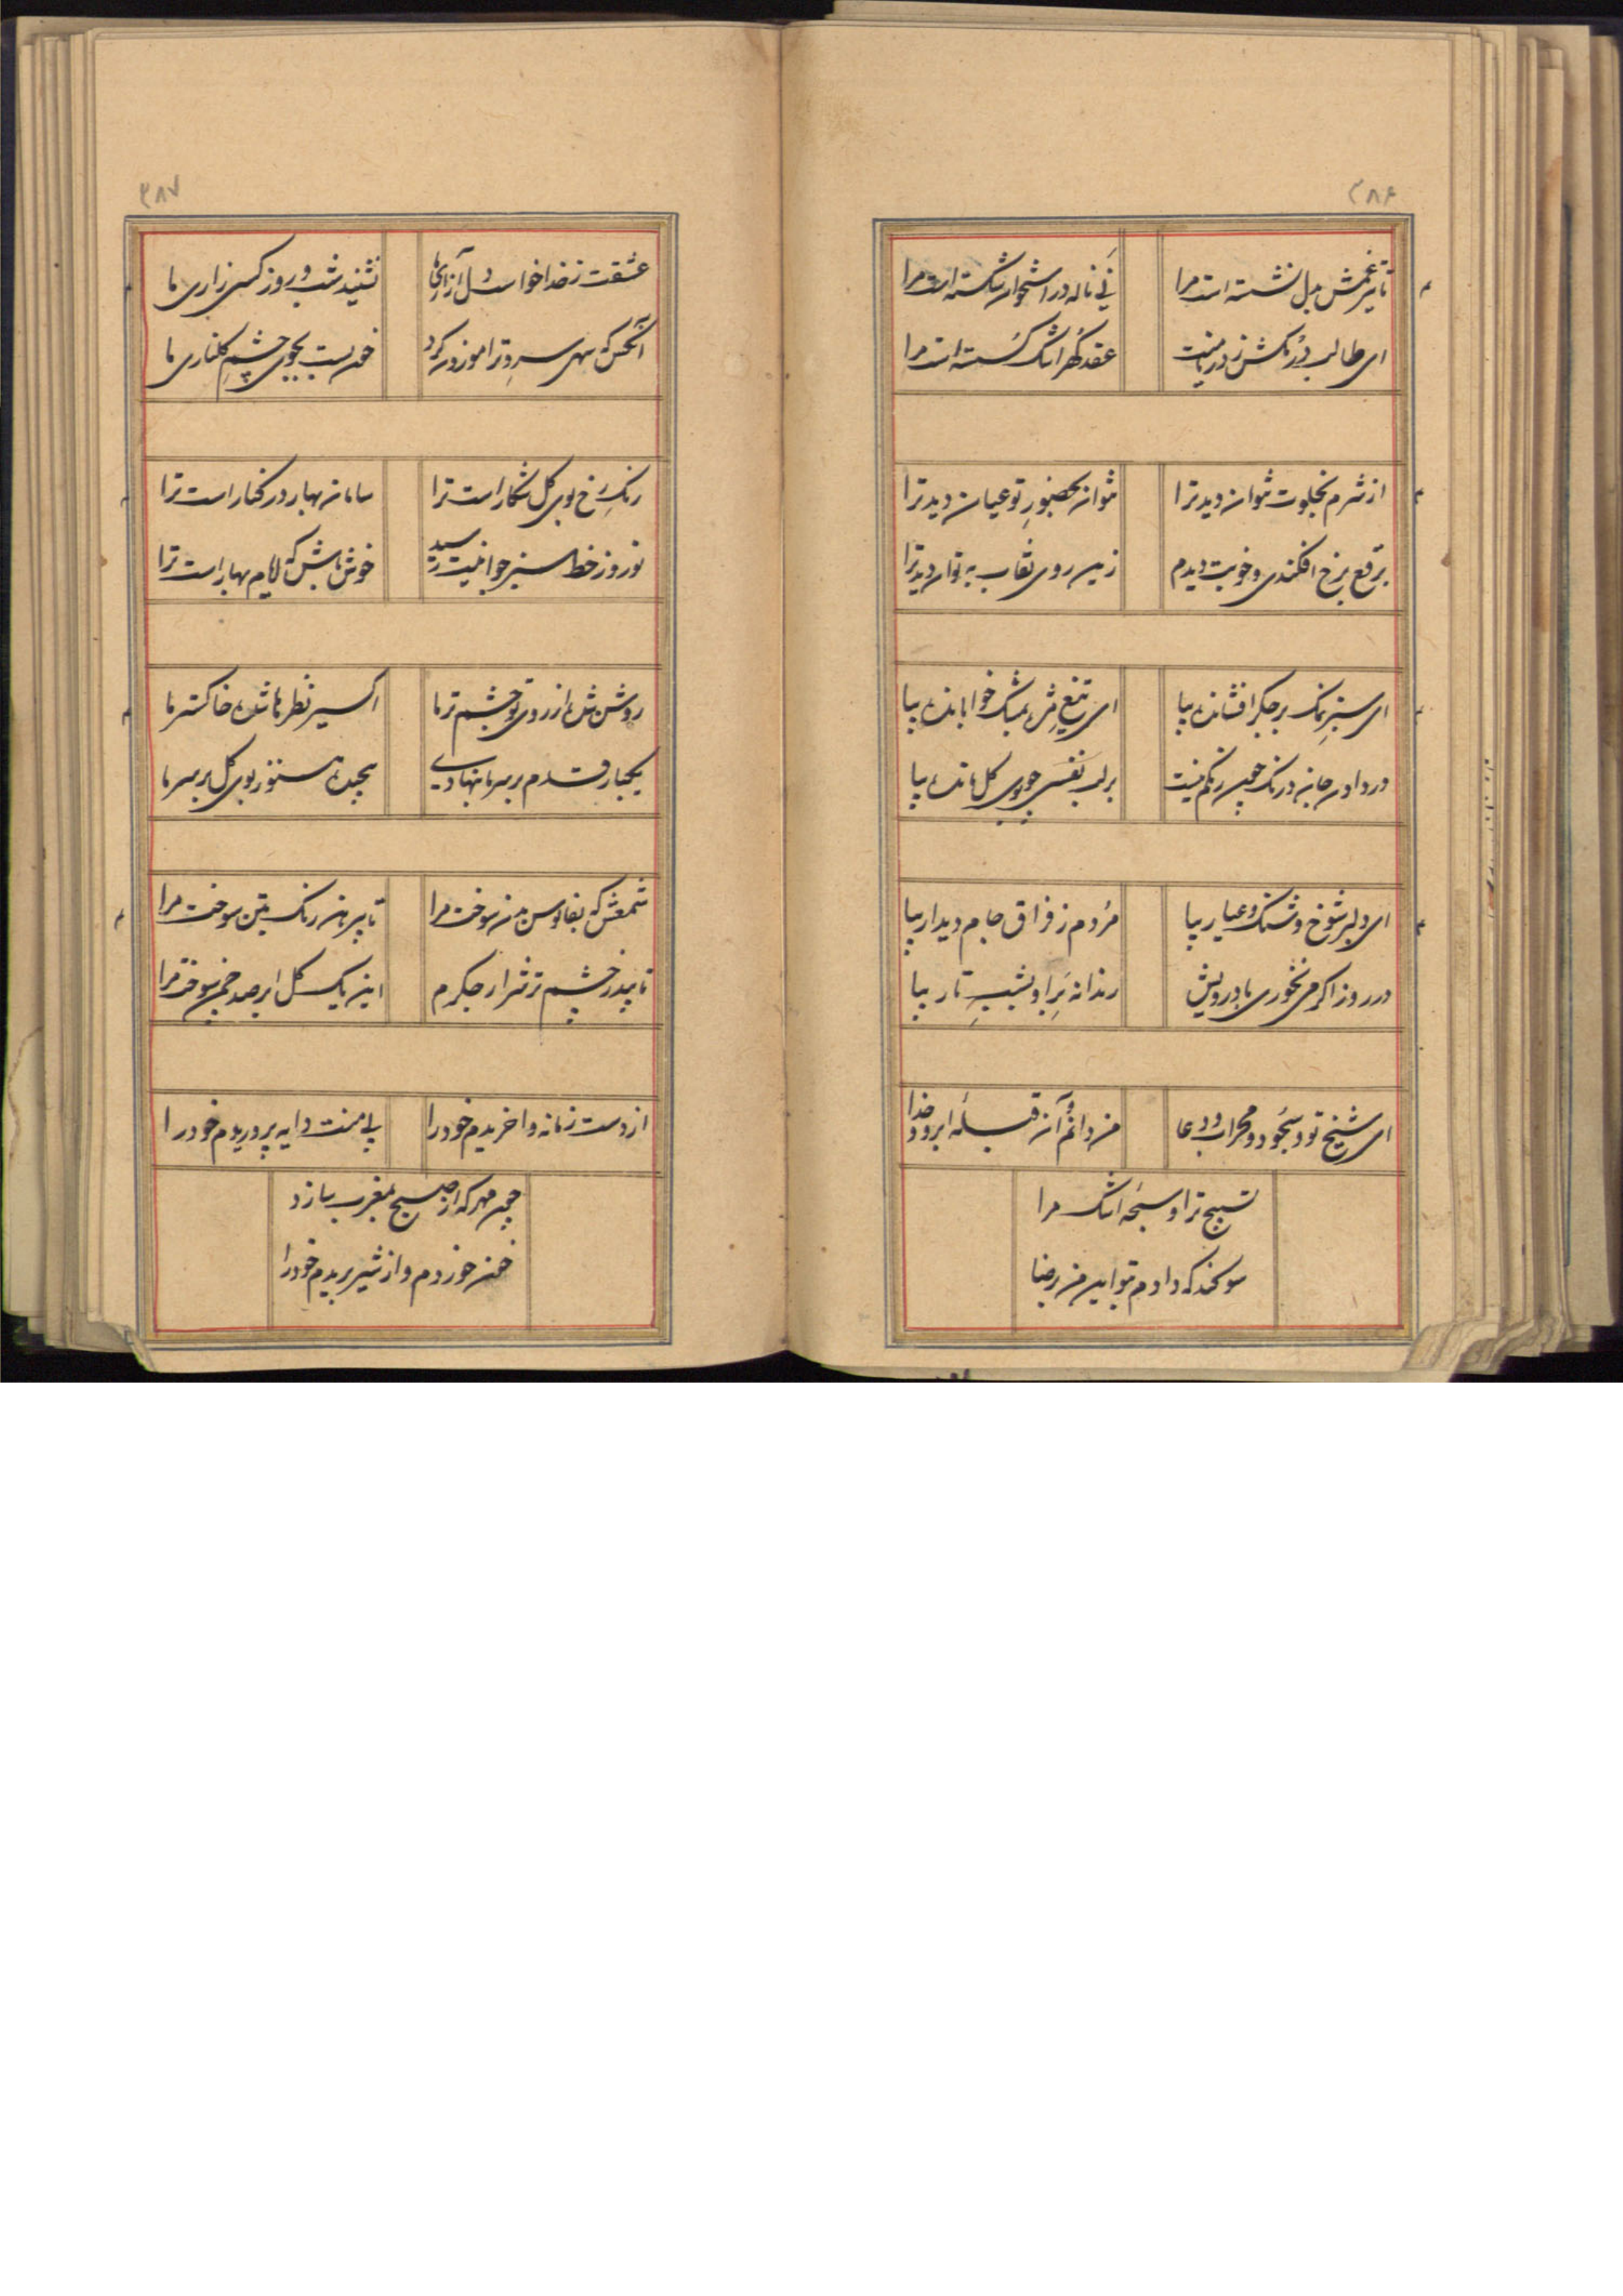 ۳۸۶
تا تیر غمش بدل نشسته است مرا
نی ناله در استخوان شکسته است مرا
ای طالب در مکش ز دریا منت
عقد گهر اشک گسسته است مرا
از شرم بخلوت نتوان دید ترا
نتوان بحضور تو عیان دید ترا
برقع برخ افکندی و خوبت دیدم
زین روی نقاب به توان دید ترا
ای سبز نمک بر جگر افشانده بیا
ای تیغ مژه بمشک خوابانده بیا
در دادن جان درنگ چون رنگم نیست
بر لب نفسی چو بوی گل مانده بیا
ای دلبر شوخ و شنگ و عیار بیا
مردم ز فراق جام دیدار بیا
در روز اگر می نخوری با درویش
رندانه براو بشب تار بیا
ای شیخ تو و سجود و محراب و دعا
من دانم و آن قبله ابرو و خدا
تسبیح ترا و سبحه اشک مرا
سوکند که دادم بتو این من رضا
۳۸۷
عشقت ز خدا خواست دل آزاری ما
نشنید شب و روز کسی زاری ما
آنکس که سهی سرو ترا موزون کرد
خون بست بجوی چشم گلناری ما
رنگ رخ بوی گل شکار است ترا
سامان بهار در کنار است ترا
نوروز خط سبز جوانیت رسید
خوش باش که ایام بهار است ترا
روشن شده از روی تو چشم تر ما
اکسیر نظرها شده خاکستر ما
یکبار قدم بر سر ما نهادی
پیچیده هنوز بوی گل بر سر ما
شمعش که بفانوس بدن سوخت مرا
تا پیرهن رنگ بتن سوخت مرا
تابید ز چشم تر شرار جگرم
این یک گل ابر صد چمن سوخت مرا
از دست زمانه واخریدم خود را
بی منت دایه پروریدم خود را
چون مهر که از صبح بمغرب سازد
خون خوردم و از شیر بریدم خود را